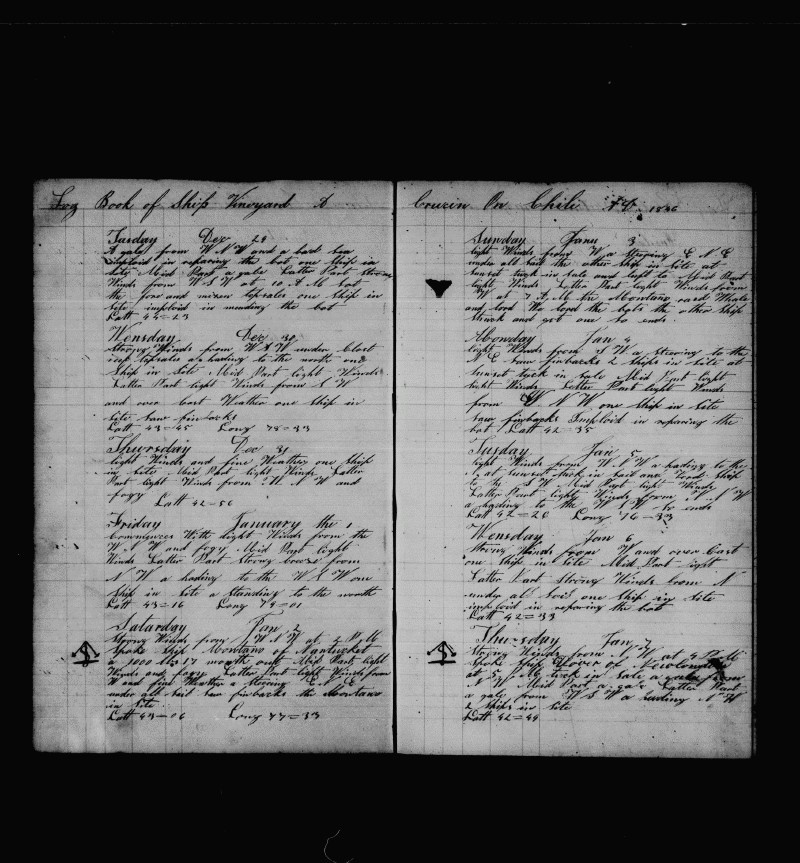 Log Book of Ship Vineyard
Tusday Dec 29
A gale from W N W and a bad sea
imploid in reparing the bot one Ship in
site Mid Part a gale Latter Part Strong
Winds from W S W at 10 A M Sot
the fore and mizen topsales one Ship in
site imploid in mending the bot
Latt 44=23
Wensday Dec 30
Strong Winds from W S W under Close
reep topsales a hading to the north one
Ship in Site Mid Part light Winds
Latter Part light Winds from S W
and over Cast Weather one Ship in
Site Saw finbacks
Latt 43=45 Long 78=33
Thursday Dec 31
light Winds and fine Weather one Ship
in Site Mid Part light Winds Latter
Part light Winds from W N W and
fogy
Latt 42=56
Friday January the 1
Commences With light Winds from the
W N W and fogy Mid Part light
Winds Latter Part Strong breeze from
N W a hading to the W S W one
Ship in Site a Standing to the north
Latt 43=16 Long 79=01
Saturday Jan 2
Strong Winds from W N W at 4 P M
Spoke Ship Montano of Nantucket
a 1000 bls 17 month out Mid Part light
Winds and fogy Latter Part light Winds from
W and fine Weather a Stearing E N E
under all Sail Saw finbacks the Montano
in Site
Latt 43=06 Long 77=33
Cruzin On Chili 1836
Sunday Janu 3
light Winds from W a Stearing E N E
under all Sail the other Ship in Site at
Sunset tuck in Sale and Luft to Mid Part
light Winds Latter Part light Winds from
W at 7 A M the Montano rasd Whale
and lord We lord the bots the other Ship
Struck and got one So ends
Monday Jan 4
light Winds from S W a Stearing to the
N E Saw finbacks 2 Ships in Site at
Sunset tuck in Sale Mid Part light
light Winds Latter Part light Winds
from W N W one Ship in Site
Saw finbacks Imploid in reparing the
bot Latt 42=35
Tusday Jan 5
light Winds from W N W a hading to the
at Sunset tuck in Sail and Ship
to the S W Mid Part light Winds
Latter Part light Winds from W N W
a hading to the W S W So ends
Latt 42=26 Long 76=33
Wensday Jan 6
Strong Winds from W and over Cast
one Ship in Site Mid Part light
Latter Part Strong Winds from N
under all Sail one Ship in Site
imploid in reparing the bot
Latt 42=33
Thursday Jan 7
Strong Winds from N W at 4 P M
Spoke Ship of Newlondon
at P M tuck in Sale a gale from
Mid Part a gale Latter Part
a gale from W S W a hading N W
2 Ships in Site
Latt 42=44